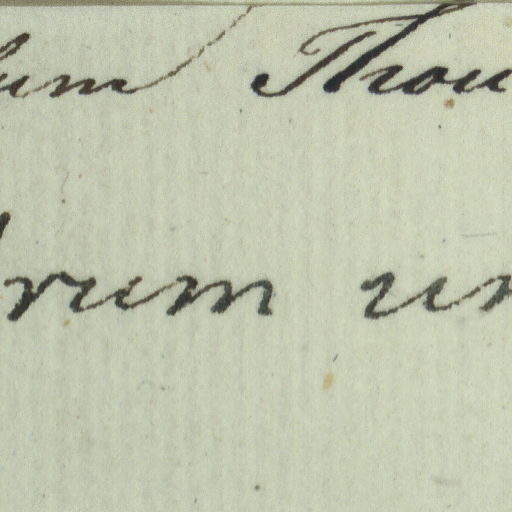 um Thou
rum un